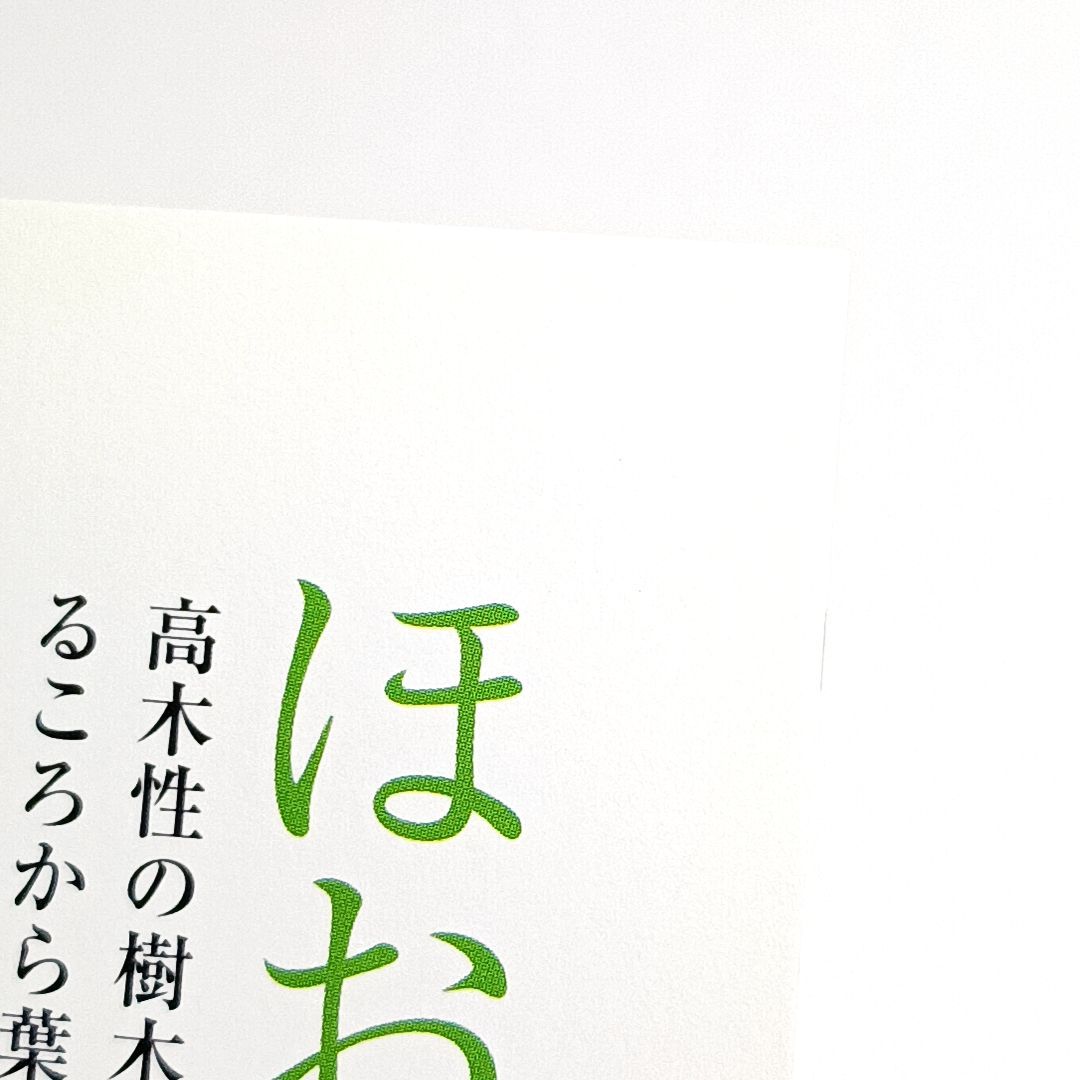 ほお
高木性の樹木
るころから葉